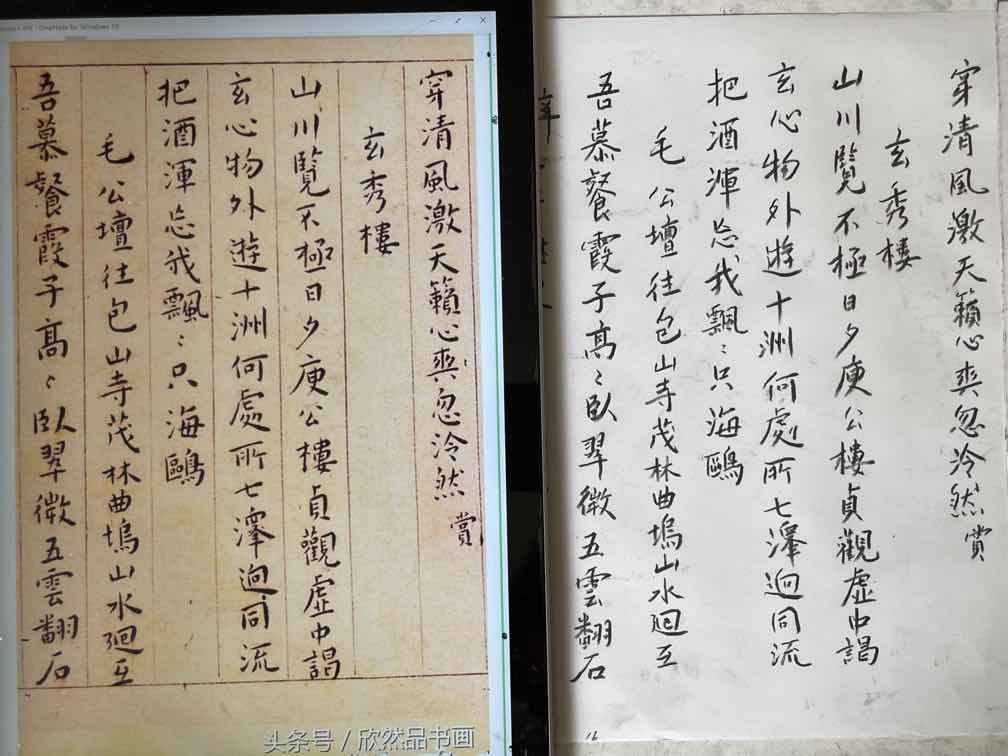 OneNote for Windows 10
穿清風激天籟心爽忽泠然
賞
玄秀樓
山川覽不極日夕庾公樓貞觀虛中謁
玄心物外遊十洲何處所七澤迥同流
把酒渾忘我飄〻只海鷗
毛公壇往包山寺茂林曲塢山水廻互
吾慕餐霞子高〻臥翠微五雲翻石
头条号 / 欣然品书画
穿清風激天籟心爽忽泠然
賞
玄秀樓
山川覽不極日夕庾公樓貞觀虛中謁
玄心物外遊十洲何處所七澤迥同流
把酒渾忘我飄〻只海鷗
毛公壇往包山寺茂林曲塢山水廻互
吾慕餐霞子高〻臥翠微五雲翻石